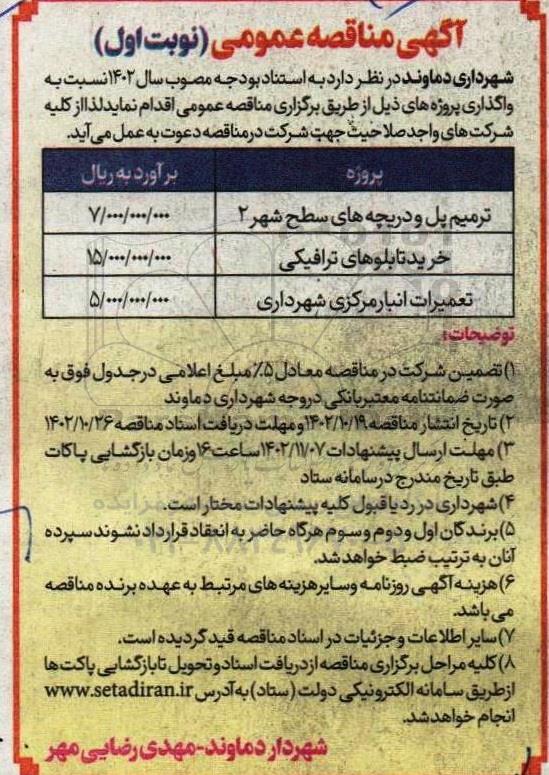 آگهی مناقصه عمومی (نوبت اول)
شهرداری دماوند در نظر دارد به استناد بودجه مصوب سال ۱۴۰۲ نسبت به
واگذاری پروژه های ذیل از طریق برگزاری مناقصه عمومی اقدام نماید لذا از کلیه
شرکت های واجد صلاحیت جهت شرکت در مناقصه دعوت به عمل می آید.
پروژه برآورد به ریال
ترمیم پل و دریچه های سطح شهر ۲ ۷/۰۰۰/۰۰۰/۰۰۰
خرید تابلوهای ترافیکی ۱۵/۰۰۰/۰۰۰/۰۰۰
تعمیرات انبار مرکزی شهرداری ۵/۰۰۰/۰۰۰/۰۰۰
توضیحات:
۱) تضمین شرکت در مناقصه معادل ۵٪ مبلغ اعلامی در جدول فوق به
صورت ضمانتنامه معتبر بانکی در وجه شهرداری دماوند
۲) تاریخ انتشار مناقصه ۱۴۰۲/۱۰/۱۹ و مهلت دریافت اسناد مناقصه ۱۴۰۲/۱۰/۲۶
۳) مهلت ارسال پیشنهادات ۱۴۰۲/۱۱/۰۷ ساعت ۱۶ و زمان بازگشایی پاکات
طبق تاریخ مندرج در سامانه ستاد
۴) شهرداری در رد یا قبول کلیه پیشنهادات مختار است.
۵) برندگان اول و دوم و سوم هرگاه حاضر به انعقاد قرارداد نشوند سپرده
آنان به ترتیب ضبط خواهد شد.
۶) هزینه آگهی روزنامه و سایر هزینه های مرتبط به عهده برنده مناقصه
می باشد.
۷) سایر اطلاعات و جزئیات در اسناد مناقصه قید گردیده است.
۸) کلیه مراحل برگزاری مناقصه از دریافت اسناد و تحویل تا بازگشایی پاکت ها
از طریق سامانه الکترونیکی دولت (ستاد) به آدرس www.setadiran.ir
انجام خواهد شد.
شهردار دماوند-مهدی رضایی مهر